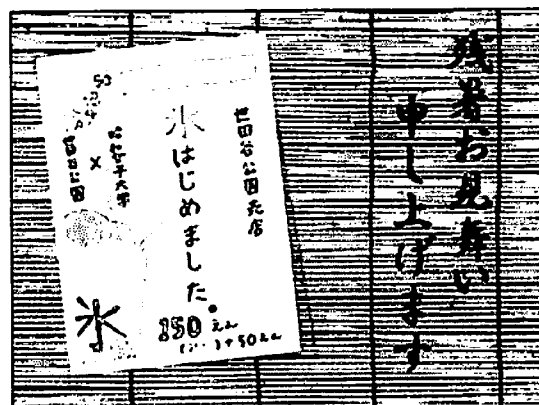 残暑お見舞い
申し上げます
世田谷公園売店
氷はじめました。
150えん
+50えん
昭和女子大学
×
世田谷公園
氷